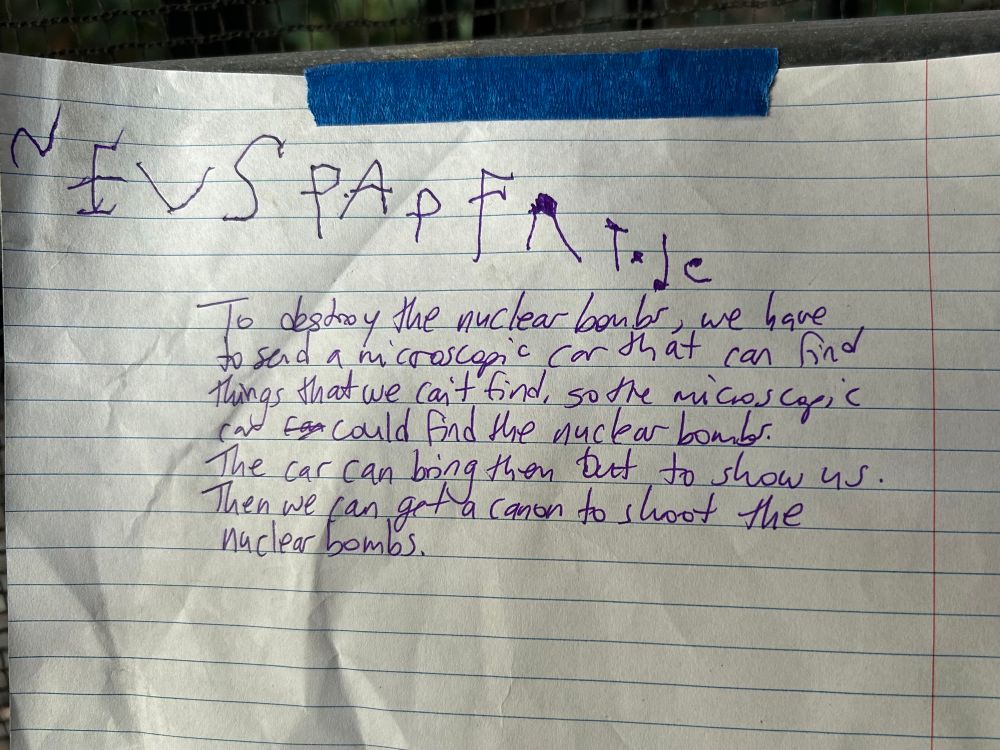 NEVSPAPFR
Tole
To destroy the nuclear bombs, we have
to send a microscopic car that can find
things that we can't find, so the microscopic
car could find the nuclear bombs.
The car can bring them but to show us.
Then we can get a canon to shoot the
nuclear bombs.